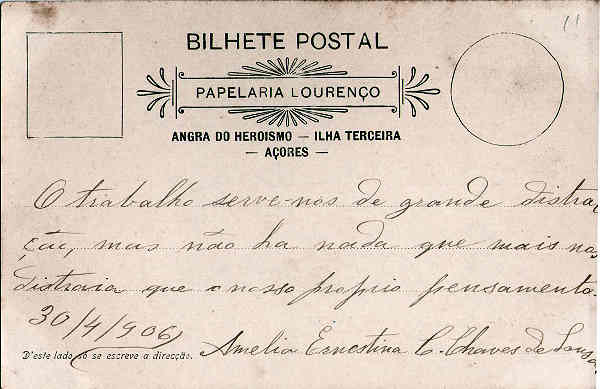 11
BILHETE POSTAL
PAPELARIA LOURENÇO
ANGRA DO HEROISMO — ILHA TERCEIRA
— AÇORES —
O trabalho serve-nos de grande distra
ção, mas não ha nada que mais nos
distraia que o nosso proprio pensamento.
30/4/906
D'este lado só se escreve a direcção.
Amelia Ernestina C. Chaves de Sousa